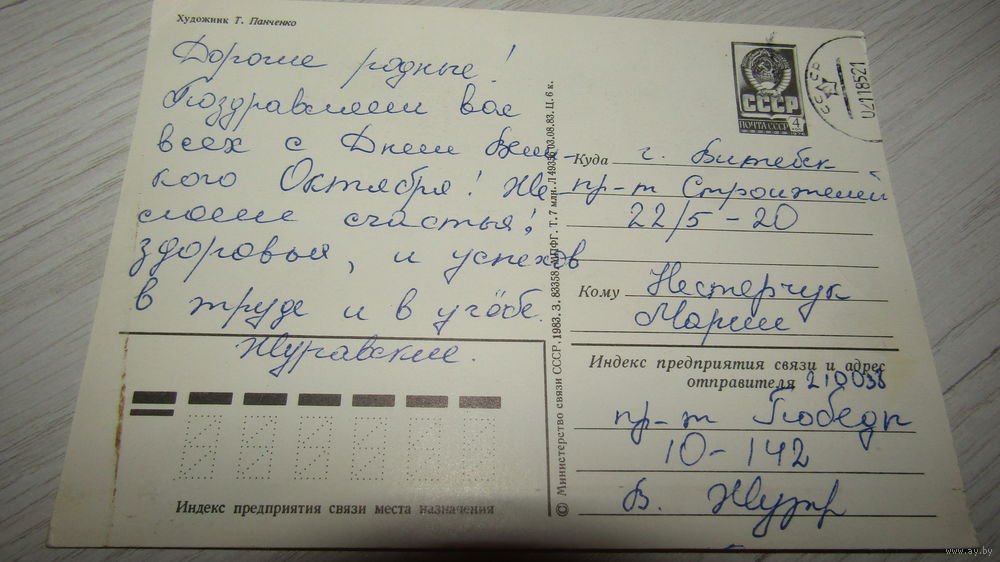 Художник Т. Панченко
Дорогие родные!
Поздравляем вас
всех с Днем Вели-
кого Октября! Же
лаем счастья!
здоровья, и успехов
в труде и в учёбе.
Журавские.
СССР
ПОЧТА СССР
4
СССР
Куда г. Витебск
пр-т Строителей
22/5-20
Кому Нестерчук
Марии
Индекс предприятия связи и адрес
отправителя 210038
пр-т Победы
10-142
В. Жур
© Министерство связи СССР. 1983. З. 83358. МПФГ. Т. 7 млн. Л 49355 03.08.83. Ц. 6 к.
Индекс предприятия связи места назначения
www.ay.by